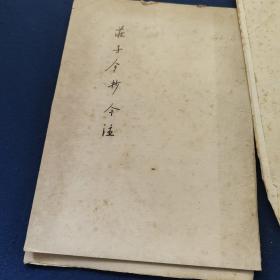 莊子今抄今注